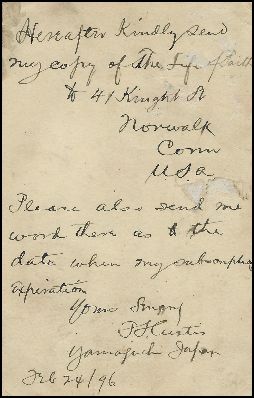 Hereafter Kindly send
my copy of The Life of Faith
to 41 Knight St
Norwalk
Conn
USA
Please also send me
word there as to the
date when my subscription
expiration
Yours
Yamaguchi Japan
Feb 24/96